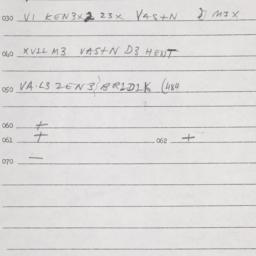 030 V1 KEN3X2 23X VAS+N D M3X
040 XVLL M3 VAS+N D3 HENT
050 VA.L3 ZEN3 BR1D1K (484
060 +
061 + 062 +
070 —